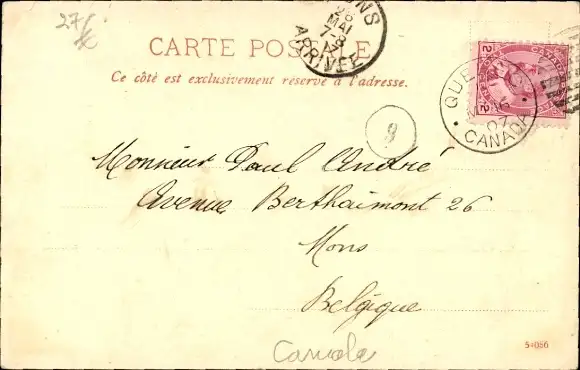 27/
MONS
28
MAI
7-8
ARRIVÉE
CARTE POSTALE
Ce côté est exclusivement réservé à l'adresse.
2 CANADA 2
QUEBEC
07
CANADA
9
Monsieur Paul André
Avenue Berthaimont 26
Mons
Belgique
Canada